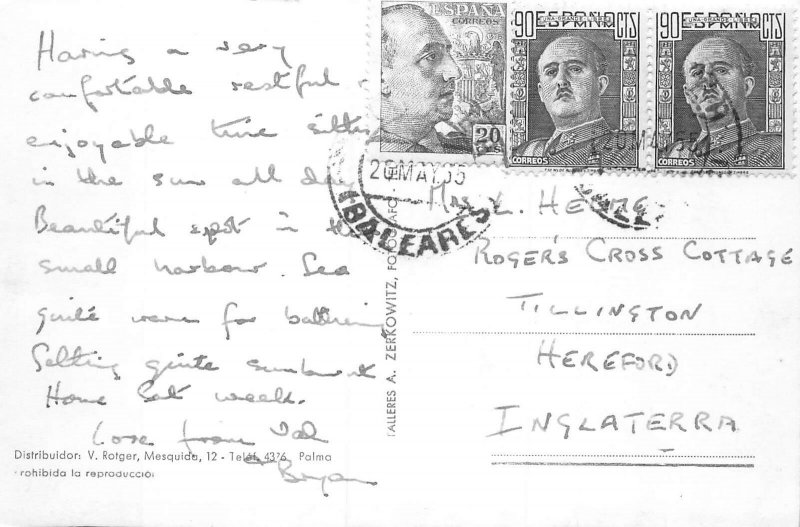 Having a very
comfortable restful &
enjoyable time sitting
in the sun all day
Beautiful spot in the
small harbour. Sea
quite warm for bathing
Getting quite sunburnt
Home Sat week.
Love from Val
& Bryan
Distribuidor: V. Rotger, Mesquida, 12 - Teléf. 4376 Palma
rohibida la reproducció
TALLERES A. ZERKOWITZ, FOTÓGRAFO
ESPAÑA
CORREOS
20
CTS
90 ESPAÑA CTS
UNA GRANDE LIBRE
CORREOS
90 ESPAÑA CTS
UNA GRANDE LIBRE
CORREOS
20 MAY. 55
(BALEARES)
20 MAY. 55
Mrs L. HELME
ROGER'S CROSS COTTAGE
TILLINGTON
HEREFORD
INGLATERRA